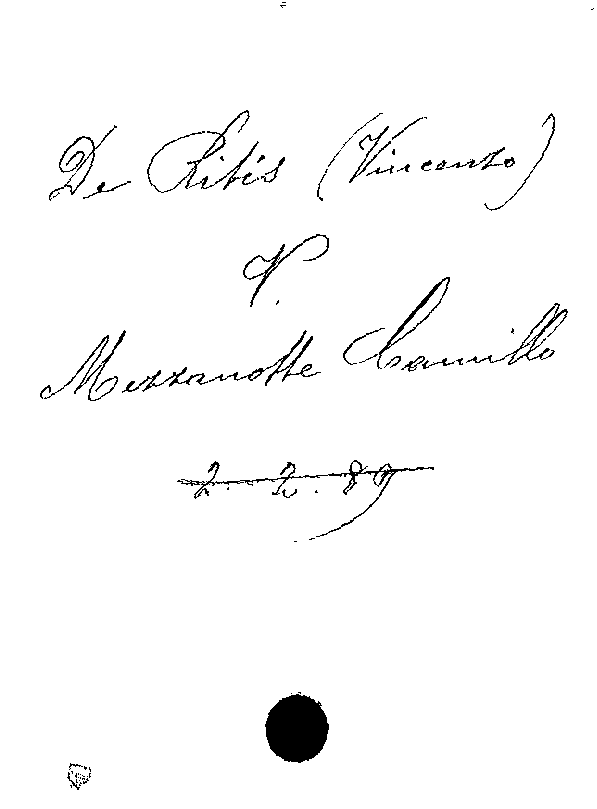 De Ritis (Vincenzo)
V.
Mezzanotte Camillo
2. 2. 89